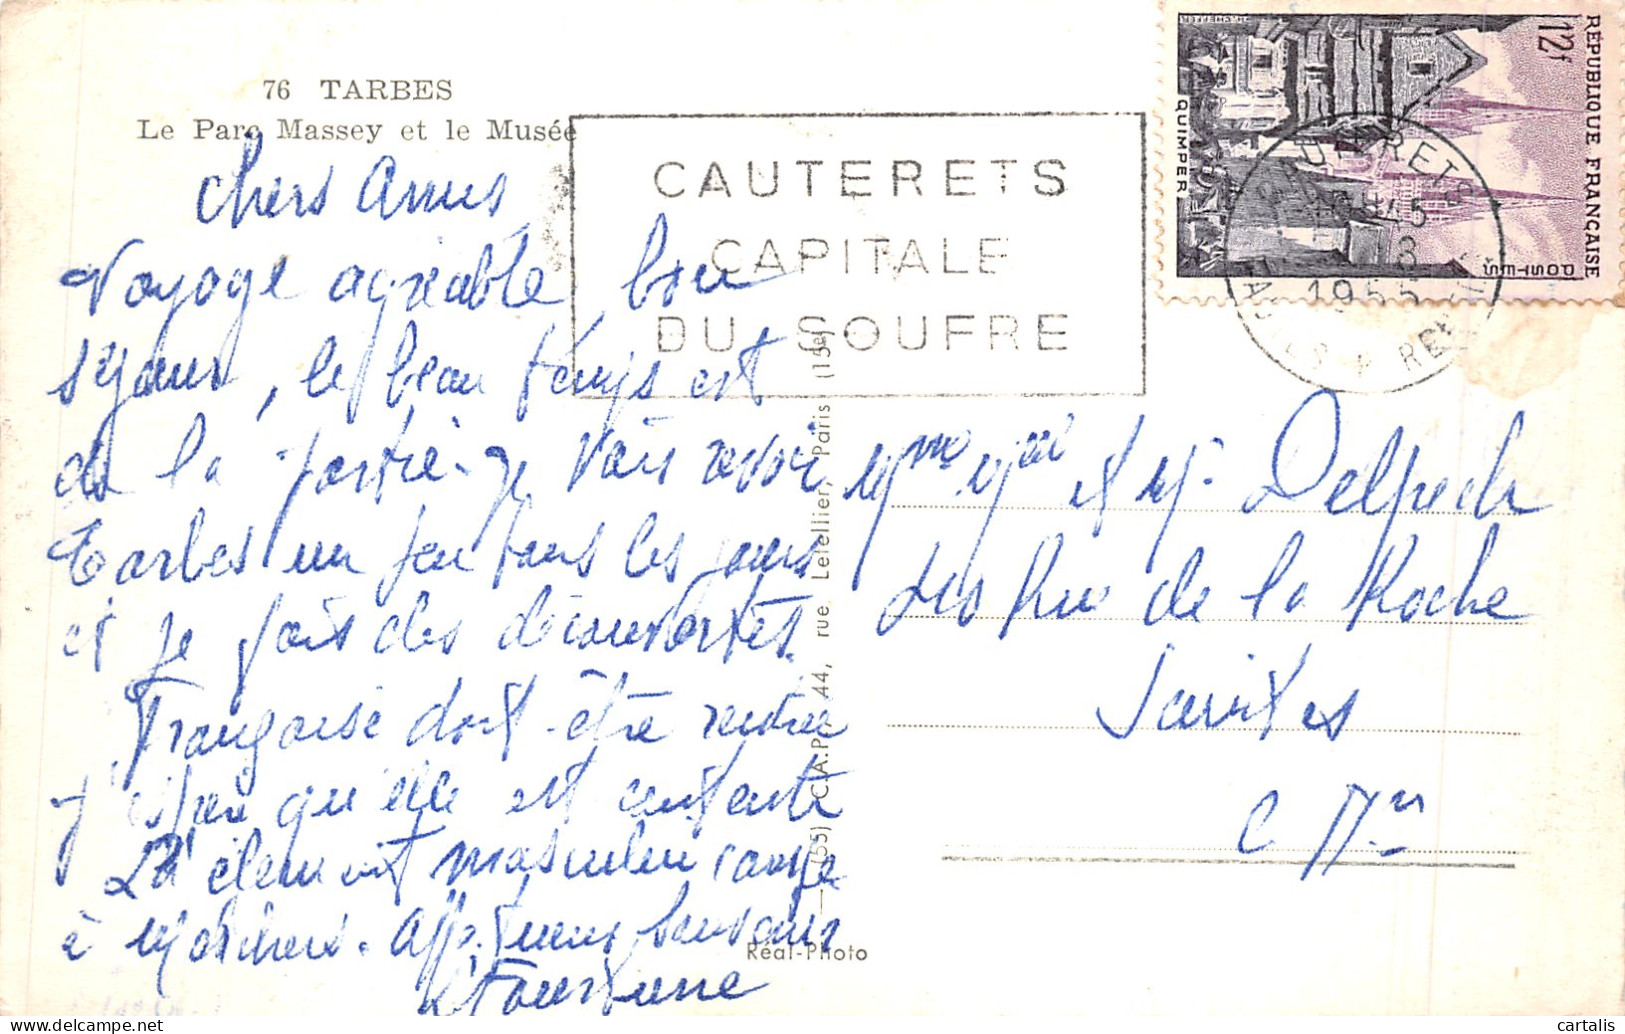 76 TARBES
Le Parc Massey et le Musée
CAUTERETS
CAPITALE
DU SOUFRE
RÉPUBLIQUE FRANÇAISE
12f
POSTES
QUIMPER
CAUTERETS
1955
Chers Amis
Voyage agréable, bon
séjour, le beau temps est
de la partie. je vais revoir
Tarbes un peu tous les jours
et je fais des découvertes.
Françoise doit être rentrée
j'espère qu'elle est contente
L'élément masculin
à
Mme et M. Delpech
Rue de la Roche
Saintes
C Mme
(55) C.A.P. 44, rue Letellier, Paris (15e)
Réal-Photo
cartalis
delcampe.net